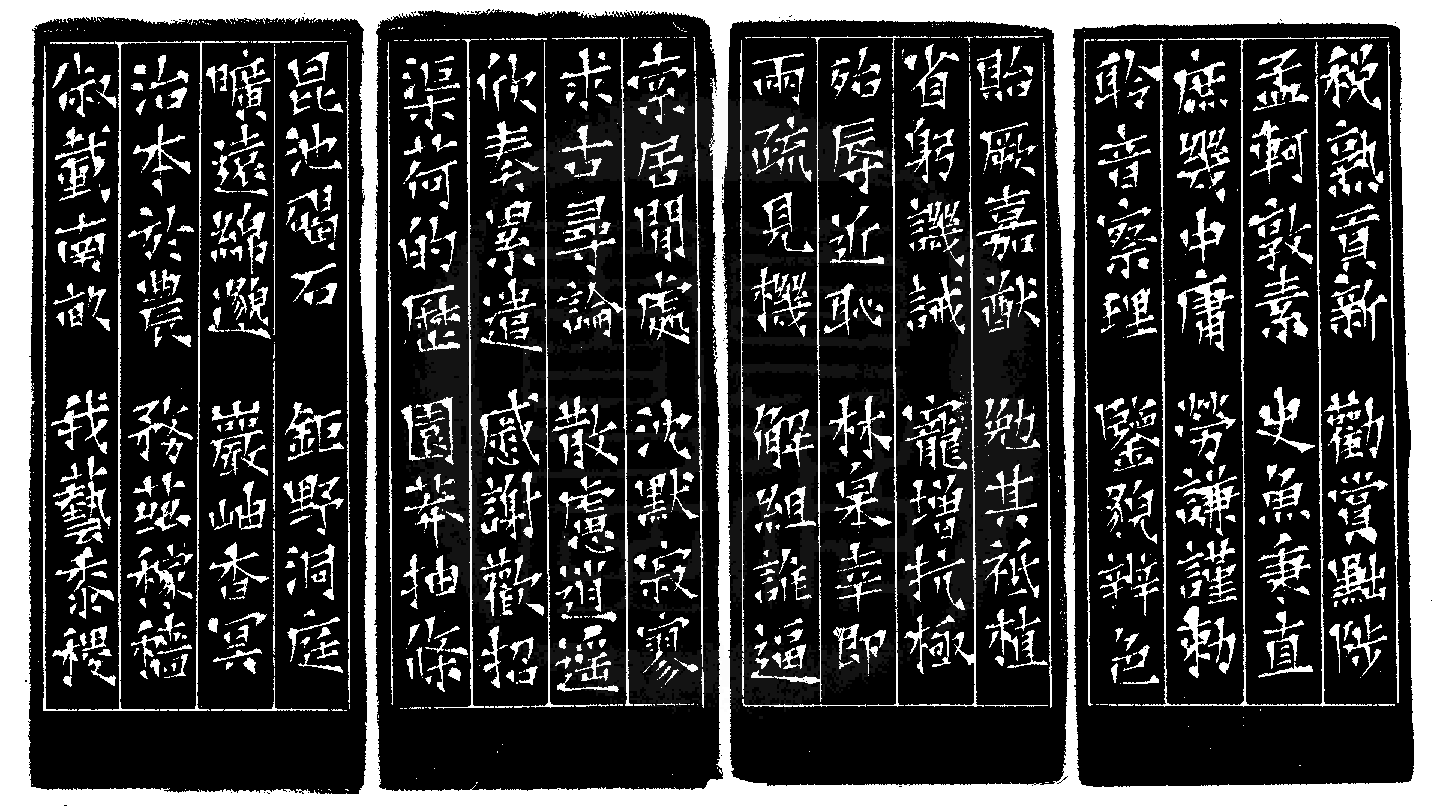 稅熟貢新 勸賞黜陟
孟軻敦素 史魚秉直
庶幾中庸 勞謙謹勑
聆音察理 鑒貌辨色
貽厥嘉猷 勉其祗植
省躬譏誡 寵增抗極
殆辱近恥 林皋幸即
兩疏見機 解組誰逼
索居閒處 沈默寂寥
求古尋論 散慮逍遙
欣奏累遣 慼謝歡招
渠荷的歷 園莽抽條
昆池碣石 鉅野洞庭
曠遠綿邈 巖岫杳冥
治本於農 務茲稼穡
俶載南畝 我藝黍稷